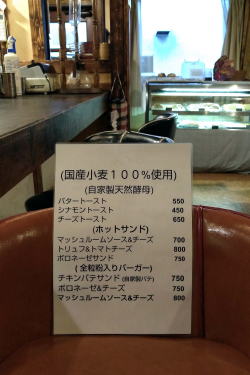 (国産小麦１００%使用)
(自家製天然酵母)
バタートースト 550
シナモントースト 450
チーズトースト 650
(ホットサンド)
マッシュルームソース&チーズ 700
トリュフ&トマトチーズ 800
ボロネーゼサンド 750
(全粒粉入りバーガー)
チキンパテサンド(自家製パテ) 750
ボロネーゼ&チーズ 750
マッシュルームソース&チーズ 800